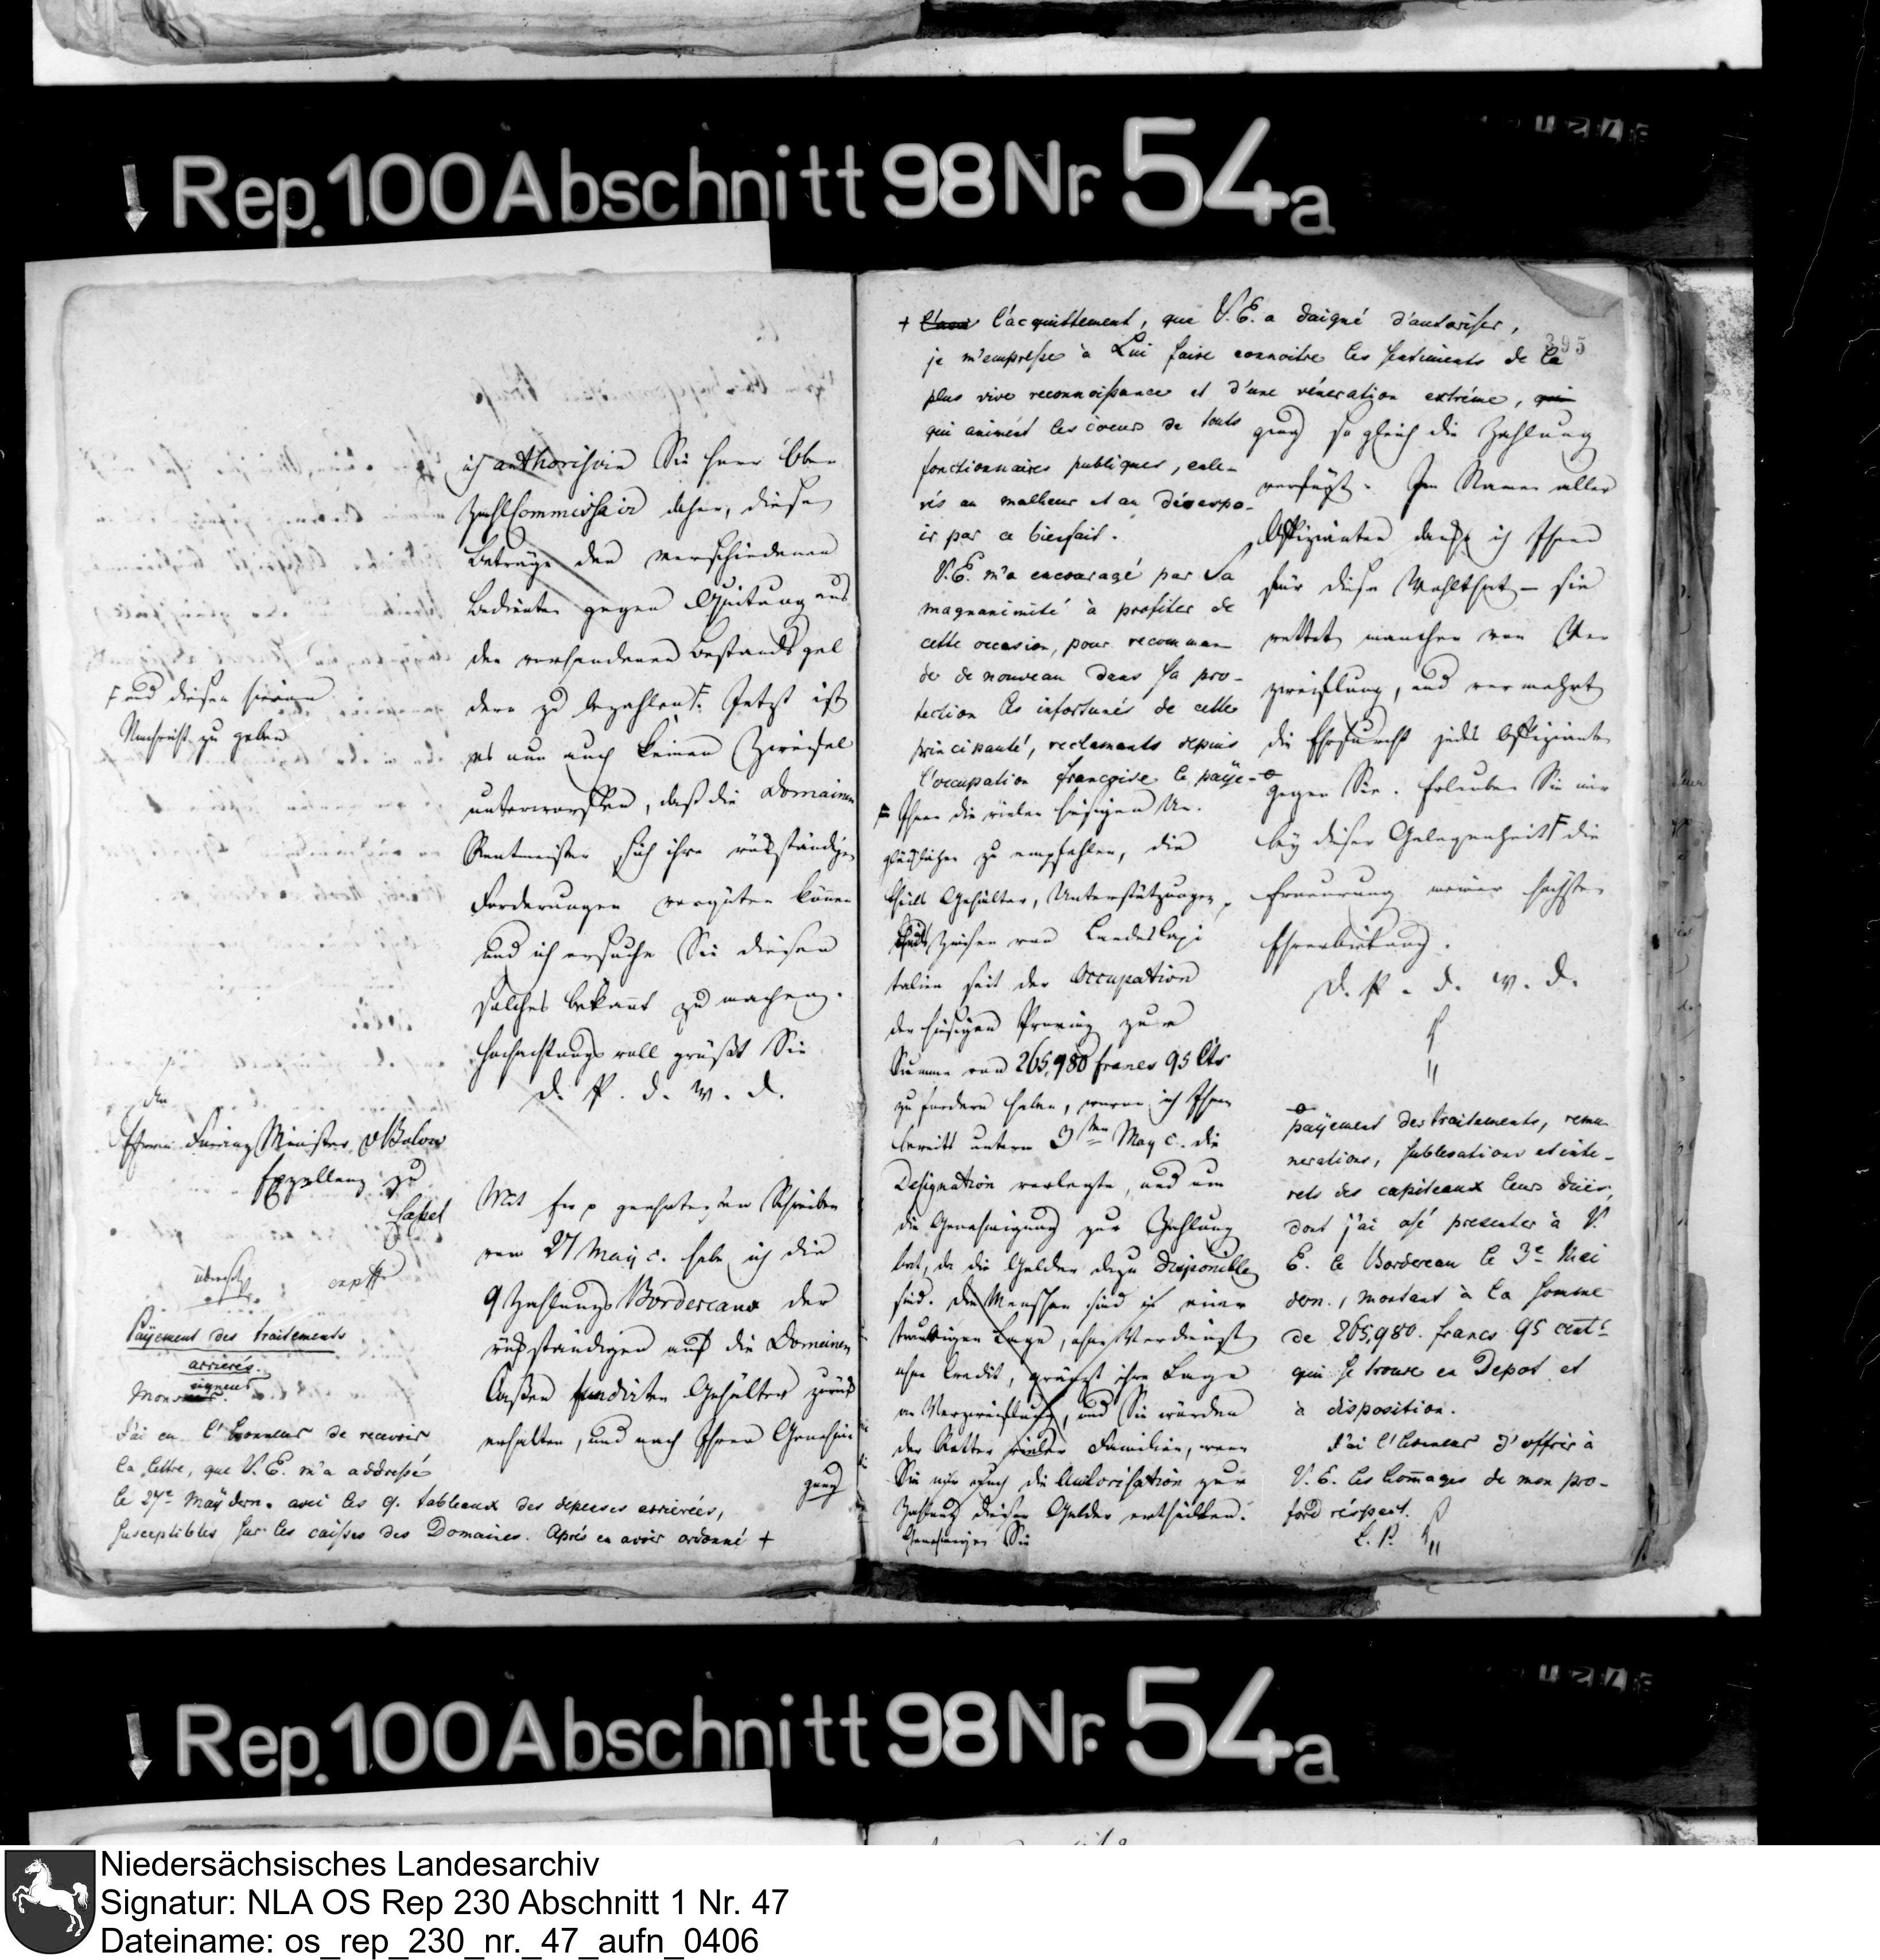 Rep. 100 Abschnitt 98 Nr. 54a
395
ich authorisire Sie Herr Ober
Zahl Commissair daher, diese
Beträge den verschiedenen
Bedienten gegen Quitung aus
den vorhandenen Bestandsgel
dern zu bezahlen F. Jetzt ist
es nun auch keinen Zweifel
unterworffen, daß die Domainen
Rentmeister sich ihre rükständige
Forderungen vergüten können
und ich ersuche Sie diesen
solches bekant zu machen.
Hochachtungsvoll grüßt Sie
D. P. d. W. D.
F und diesen hievon
Nachricht zu geben
den
Herrn Finanz Minister v Bulow
Exzellenz zu
Cassel
Mit Ew p geehrtesten Schreiben
vom 27 May c. habe ich die
9 Zahlungs Bordereaux der
rükständigen auf die Domainen
Cassen fundirten Gehälter zurük
erhalten, und nach Ihrer Genehmi
gung
Payement des traitements
arrierés.
Monseigneur
J'ai eu l'honneur de recevoir
la lettre, que V. E. m'a addressé
le 27e May dern. avec les 9. tableaux des depenses arrierées,
susceptibles sur les caisses des Domaines. Aprés en avoir ordonné +
+ l'acquittement, que V. E. a daigné d'autoriser,
je m'empresse à Lui faire connoitre les sentiments de la
plus vive reconnoissance et d'une véneration extréme,
qui animent les coeurs de touts
fonctionnaires publiques, enle-
vés au malheur et au désespo-
ir par ce bienfait.
V. E. m'a encouragé par Sa
magnanimité à profiter de
cette occasion, pour recomman
der de nouveau dans Sa pro-
tection les infortunés de cette
principauté, reclamants depuis
l'occupation françoise le paye-
F Ihnen die vielen hiesigen Un-
glücklichen zu empfehlen, die
theils Gehälter, Unterstützungen,
theils Zinsen von Landes Capi
talien seit der Occupation
der hiesigen Provinz zur
Summe von 265,980 francs 95 Cts
zu fordern haben, wovon ich Ihnen
bereits unterm 3ten May c. die
Designation vorlegte, und um
die Genehmigung zur Zahlung
bat, da die Gelder dazu disponible
sind. Die Menschen sind in einer
traurigen Lage, ohne Verdienst
ohne Credit, gränzt ihre Lage
an Verzweiflung, und Sie würden
der Retter vieler Familien, wenn
Sie mir auch die Autorisation zur
Zahlung dieser Gelder ertheilten.
Genehmigen Sie
gung sogleich die Zahlung
verfügt. Im Namen aller
Offizianten danke ich Ihnen
für diese Wohlthat – sie
rettet manchen von Ver
zweiflung, und vermehrt
die Ehrfurcht jedes Offizianten
gegen Sie. Erlauben Sie mir
bey dieser Gelegenheit F die
Erneurung meiner höchsten
Ehrerbietung.
D. P. d. W. D.
payement des traitements, remu
nerations, sublevations et inte-
rets des capiteaux leurs dûes,
dont j'ai osé presenter à V.
E. le Bordereau le 3e Mai
dern., montant à la somme
de 265,980. francs 95 cents
qui se trouve en Depot et
à disposition.
J'ai l'honneur d'offrir à
V. E. les homages de mon pro-
fond réspect.
L. P.
Rep. 100 Abschnitt 98 Nr. 54a
Niedersächsisches Landesarchiv
Signatur: NLA OS Rep 230 Abschnitt 1 Nr. 47
Dateiname: os_rep_230_nr._47_aufn_0406